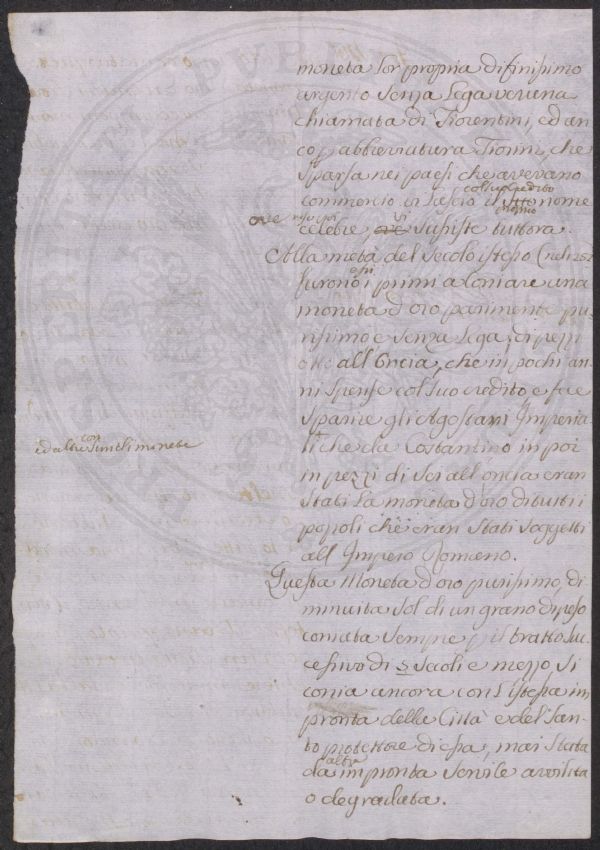 moneta lor propria di finissimo
argento senza Lega veruna
chiamata di Fiorentini, ed an
co p abbreviatura Fiorini, che
sparsa nei paesi che avevano
col suo credito
commercio il nome
medmo
ove
celebre, ove si sussiste tuttora.
Alla metà del secolo istesso
furono i primi a coniare una
moneta d'oro parimente pu
rissimo e senza Lega, di pezzi
otto all'Oncia, che in pochi an
ni spense col suo credito e fece
sparire gli Agostari Imperia
li che da Costantino in poi
con
ed altre simili monete
in pezzi di sei all'oncia eran
stati la moneta d'oro di tutti i
popoli che eran stati soggetti
all'Impero Romano.
Questa Moneta d'oro purissimo, di
minuita sol di un grano di peso
coniata sempre p il tratto suc
cessivo di 5 secoli e mezzo si
conia ancora con l'istessa im
pronta della Città e del San
to protettore di essa, mai stata
altra
da impronta servile avvilita
o degradata.
PROSPERI
PVB